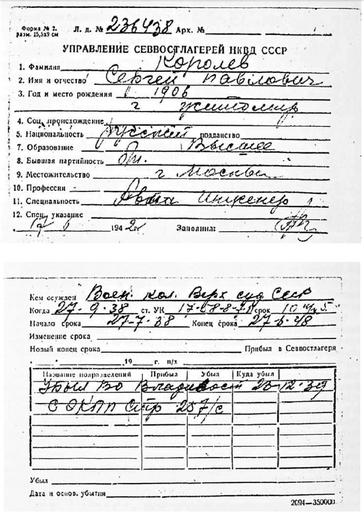 Форма № 2. Л. д. № 236438 Арх. №
разм. 15,5х9 см
УПРАВЛЕНИЕ СЕВВОСТЛАГЕРЕЙ НКВД СССР
1. Фамилия Королев
2. Имя и отчество Сергей Павлович
3. Год и место рождения 1906
г Житомир
4. Соц. происхождение
5. Национальность русский подданство
7. Образование Высшее
8. Бывшая партийность
9. Местожительство г Москва
10. Профессия
11. Специальность Инженер
12. Спец. указание
194 Заполнил:
Кем осужден Воен. кол. Верх суд СССР
Когда 27-9-38 ст. УК 17-58-8- срок 10
Начало срока 27-7-38 Конец срока 48
Изменение срока
Новый конец срока Прибыл в Севвостлагеря
19 г. п/х
Название подразделений Прибыл Убыл Куда убыл
Убыл во Владивосток 23-12-39
с Стр 257/с
Убыл
Дата и основ. убытия
2094—350000